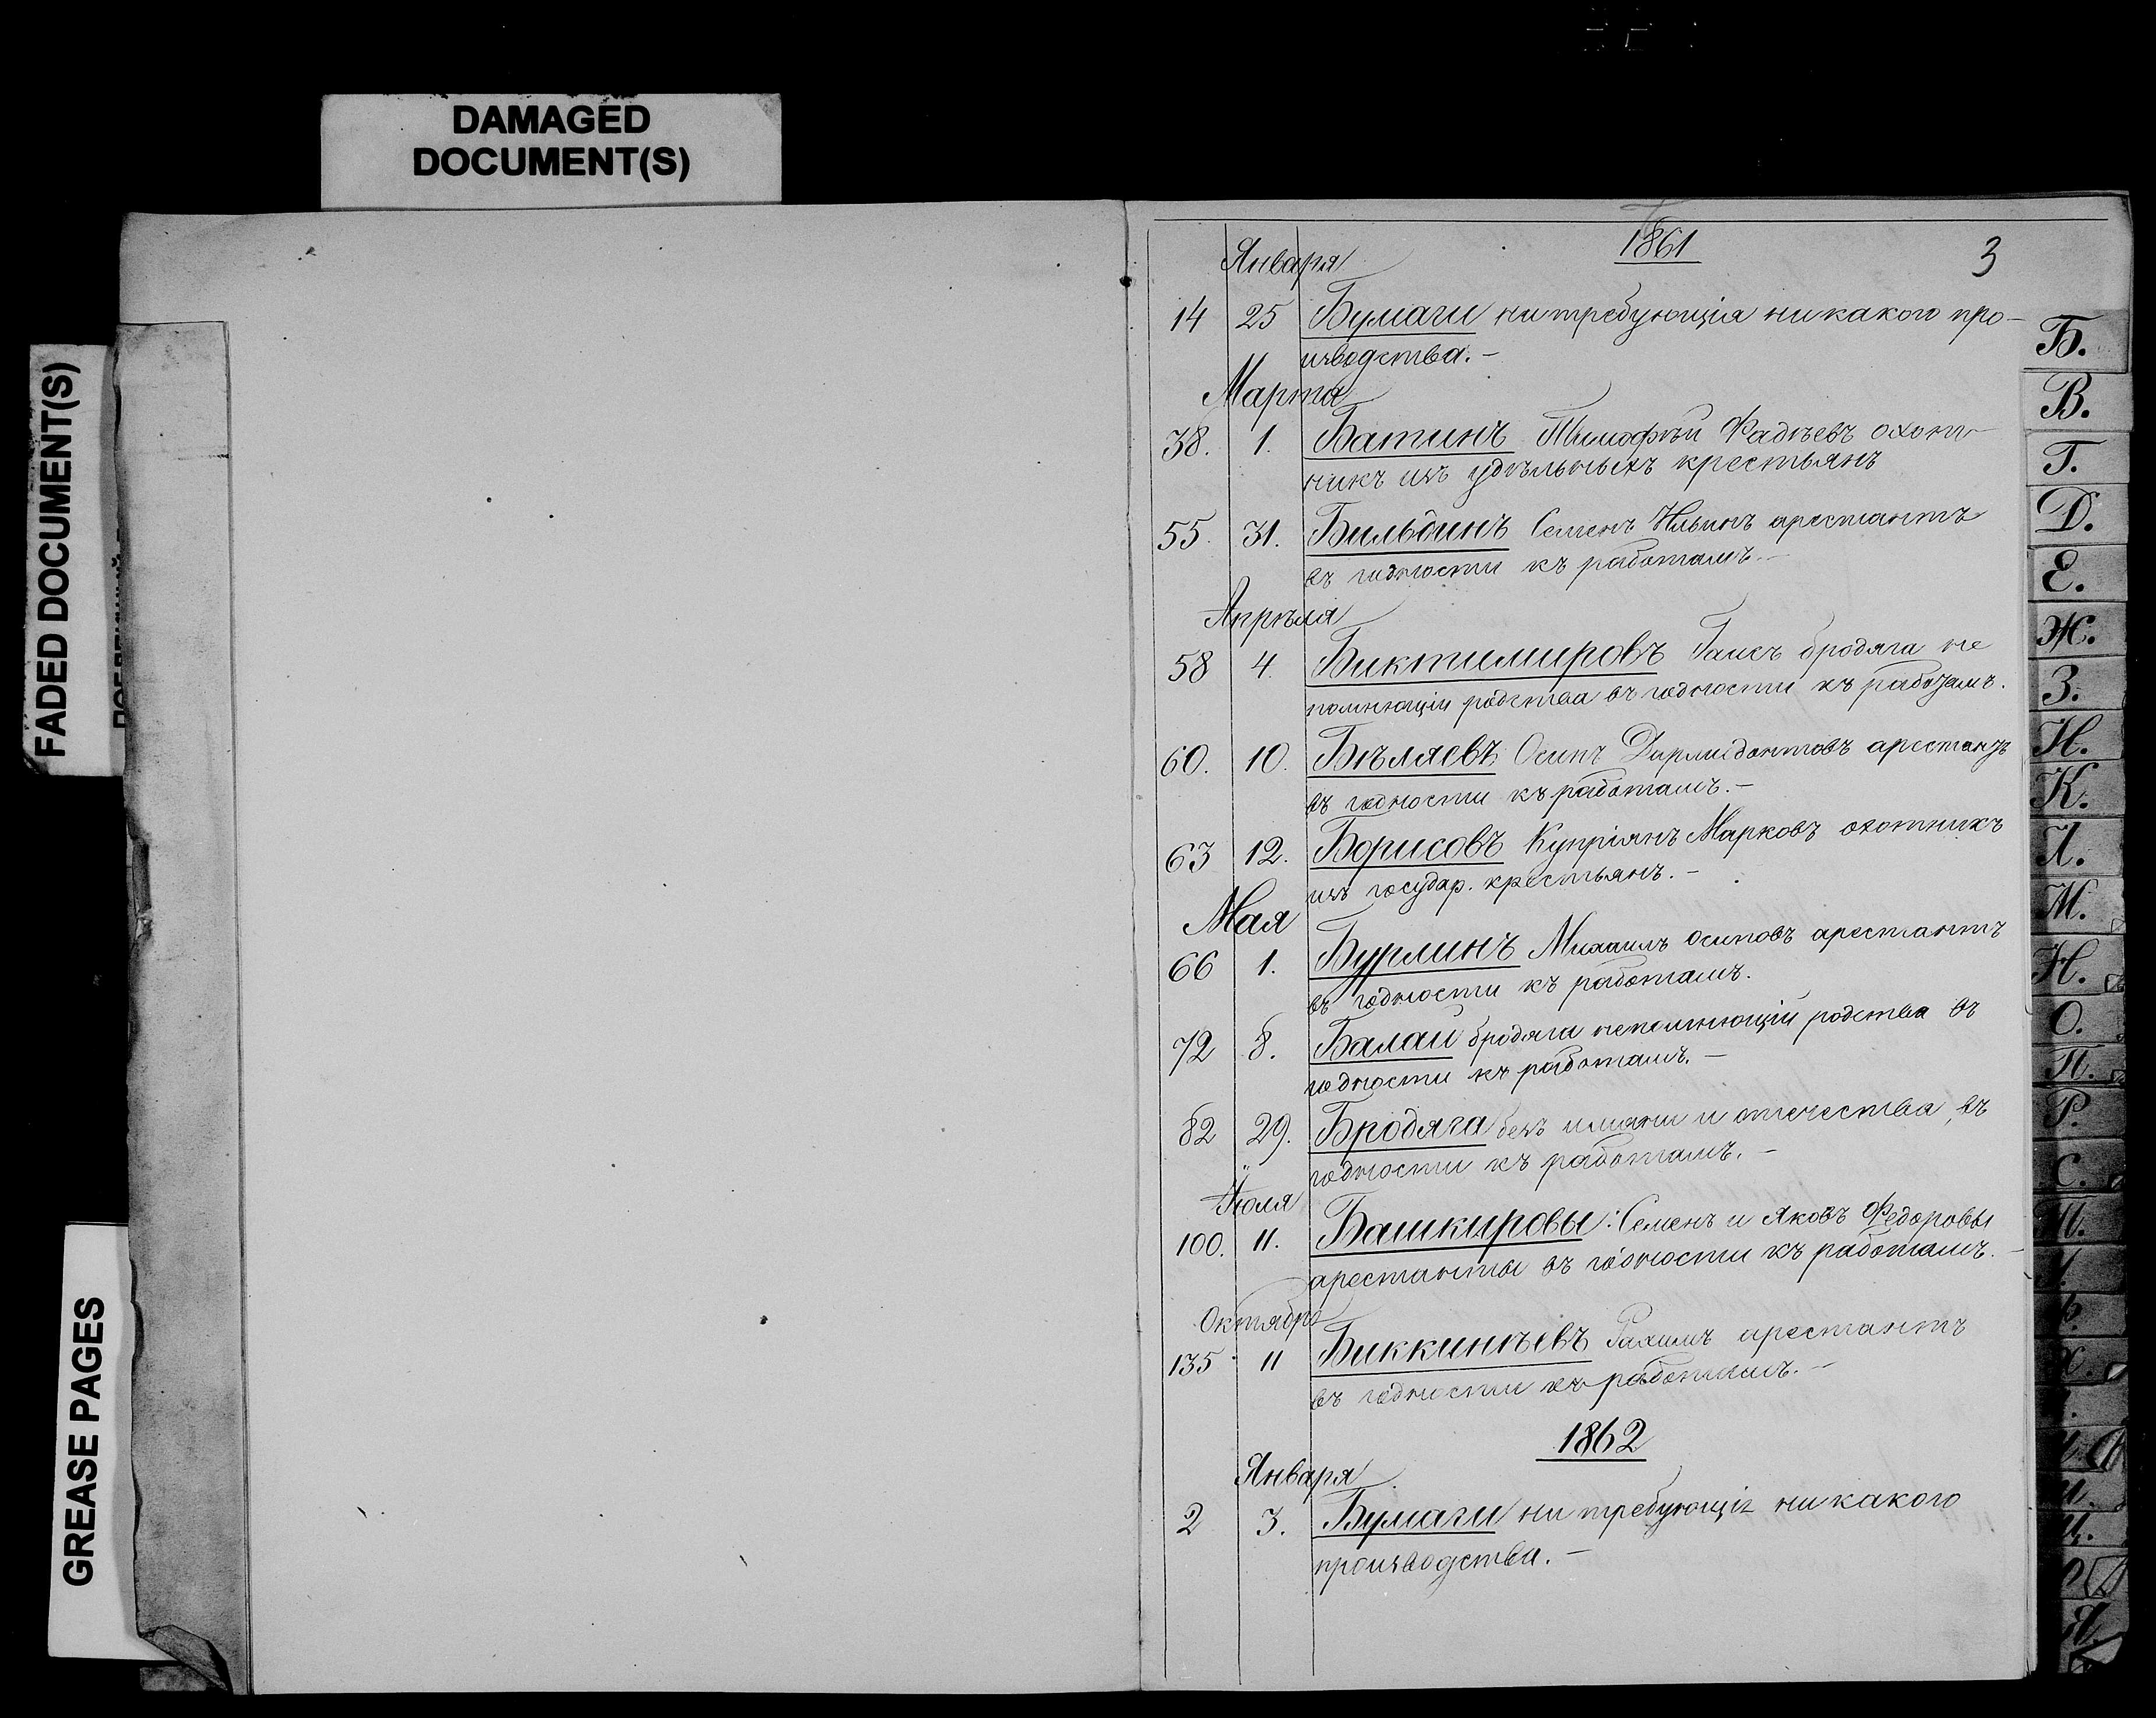 DAMAGED
DOCUMENT(S)
FADED DOCUMENT(S)
GREASE PAGES
1861
3
Января
14 25 Бумаги нитребующія никакого про-
изводства.-
Марта
38. 1. Батинъ Тимофѣй Фадѣевъ охот-
никъ изъ удѣльныхъ крестьянъ
55. 31. Бильдинъ Семенъ Ильинъ арестантъ
въ годности къ работамъ.-
Апрѣля
58 4. Биктимировъ бродяга не
помнющій родства въ годности къ работамъ.
60. 10. Бѣляевъ Осипъ Дормидонтовъ арестантъ
въ годности къ работамъ.-
63 12. Борисовъ Купріянъ Марковъ охотникъ
изъ государ. крестьянъ.-
Мая
66 1. Бурлинъ Михаилъ Осиповъ арестантъ
въ годности къ работамъ.
72 8. Балай бродяга непомнющій родства въ
годности къ работамъ.-
82 29. Бродяга безъ имяни и отечества, въ
годности къ работамъ.-
Іюля
100. 11. Башкировы: Семенъ и Яковъ Федоровы
арестанты въ годности къ работамъ.-
Октября
135 11 Биккинѣевъ Рахимъ арестантъ
въ годности къ работамъ.-
1862
Января
2 3. Бумаги ни требующія никакого
производства.-
Б.
В.
Г.
Д.
Е.
Ж.
З.
И.
К.
Л.
М.
Н.
О.
П.
Р.
С.
Т.
У.
Ф.
Х.